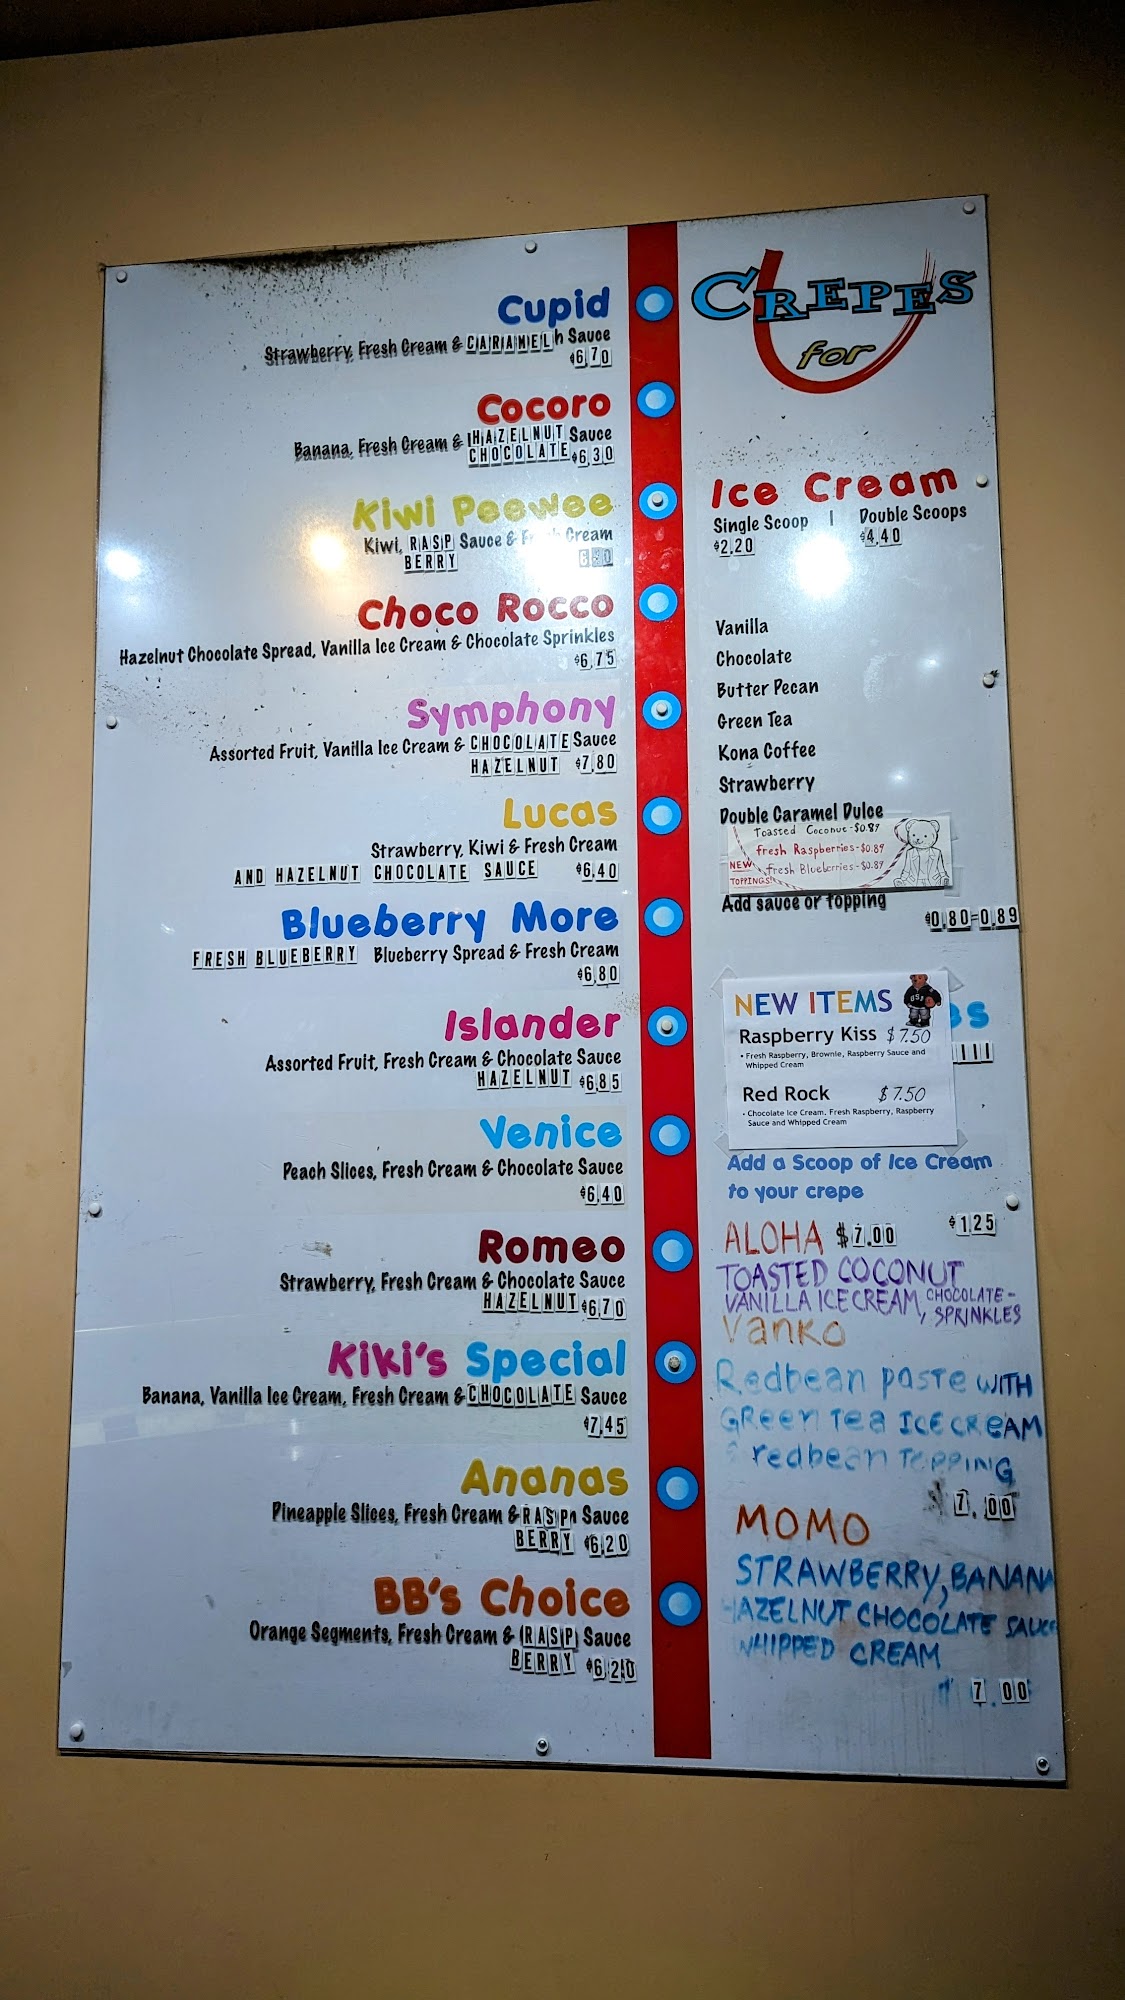 Cupid
Strawberry, Fresh Cream & CARAMEL h Sauce
$6.70
Cocoro
Banana, Fresh Cream & HAZELNUT Sauce
CHOCOLATE $6.30
Kiwi Peewee
Kiwi, RASP Sauce & Cream
BERRY
Choco Rocco
Hazelnut Chocolate Spread, Vanilla Ice Cream & Chocolate Sprinkles
$6.75
Symphony
Assorted Fruit, Vanilla Ice Cream & CHOCOLATE Sauce
HAZELNUT $7.80
Lucas
Strawberry, Kiwi & Fresh Cream
AND HAZELNUT CHOCOLATE SAUCE $6.40
Blueberry More
FRESH BLUEBERRY Blueberry Spread & Fresh Cream
$6.80
Islander
Assorted Fruit, Fresh Cream & Chocolate Sauce
HAZELNUT $6.85
Venice
Peach Slices, Fresh Cream & Chocolate Sauce
$6.40
Romeo
Strawberry, Fresh Cream & Chocolate Sauce
HAZELNUT $6.70
Kiki's Special
Banana, Vanilla Ice Cream, Fresh Cream & CHOCOLATE Sauce
$7.45
Ananas
Pineapple Slices, Fresh Cream & RASP Sauce
BERRY $6.20
BB's Choice
Orange Segments, Fresh Cream & RASP Sauce
BERRY $6.20
CREPES
for
U
Ice Cream
Single Scoop | Double Scoops
$2.20 $4.40
Vanilla
Chocolate
Butter Pecan
Green Tea
Kona Coffee
Strawberry
Double Caramel Dulce
Toasted Coconut - $0.89
fresh Raspberries - $0.89
NEW fresh Blueberries - $0.89
TOPPINGS!
Add sauce or topping
$0.80=0.89
NEW ITEMS
Raspberry Kiss $7.50
• Fresh Raspberry, Brownie, Raspberry Sauce and
Whipped Cream
Red Rock $7.50
• Chocolate Ice Cream, Fresh Raspberry, Raspberry
Sauce and Whipped Cream
Add a Scoop of Ice Cream
to your crepe
$1.25
ALOHA $7.00
TOASTED COCONUT
VANILLA ICE CREAM, CHOCOLATE-
SPRINKLES
Vanko
Redbean paste WITH
GReen Tea ICE CREAM
& redbean TOPPING
$7.00
MOMO
STRAWBERRY, BANANA
HAZELNUT CHOCOLATE SAUCE
WHIPPED CREAM
$7.00